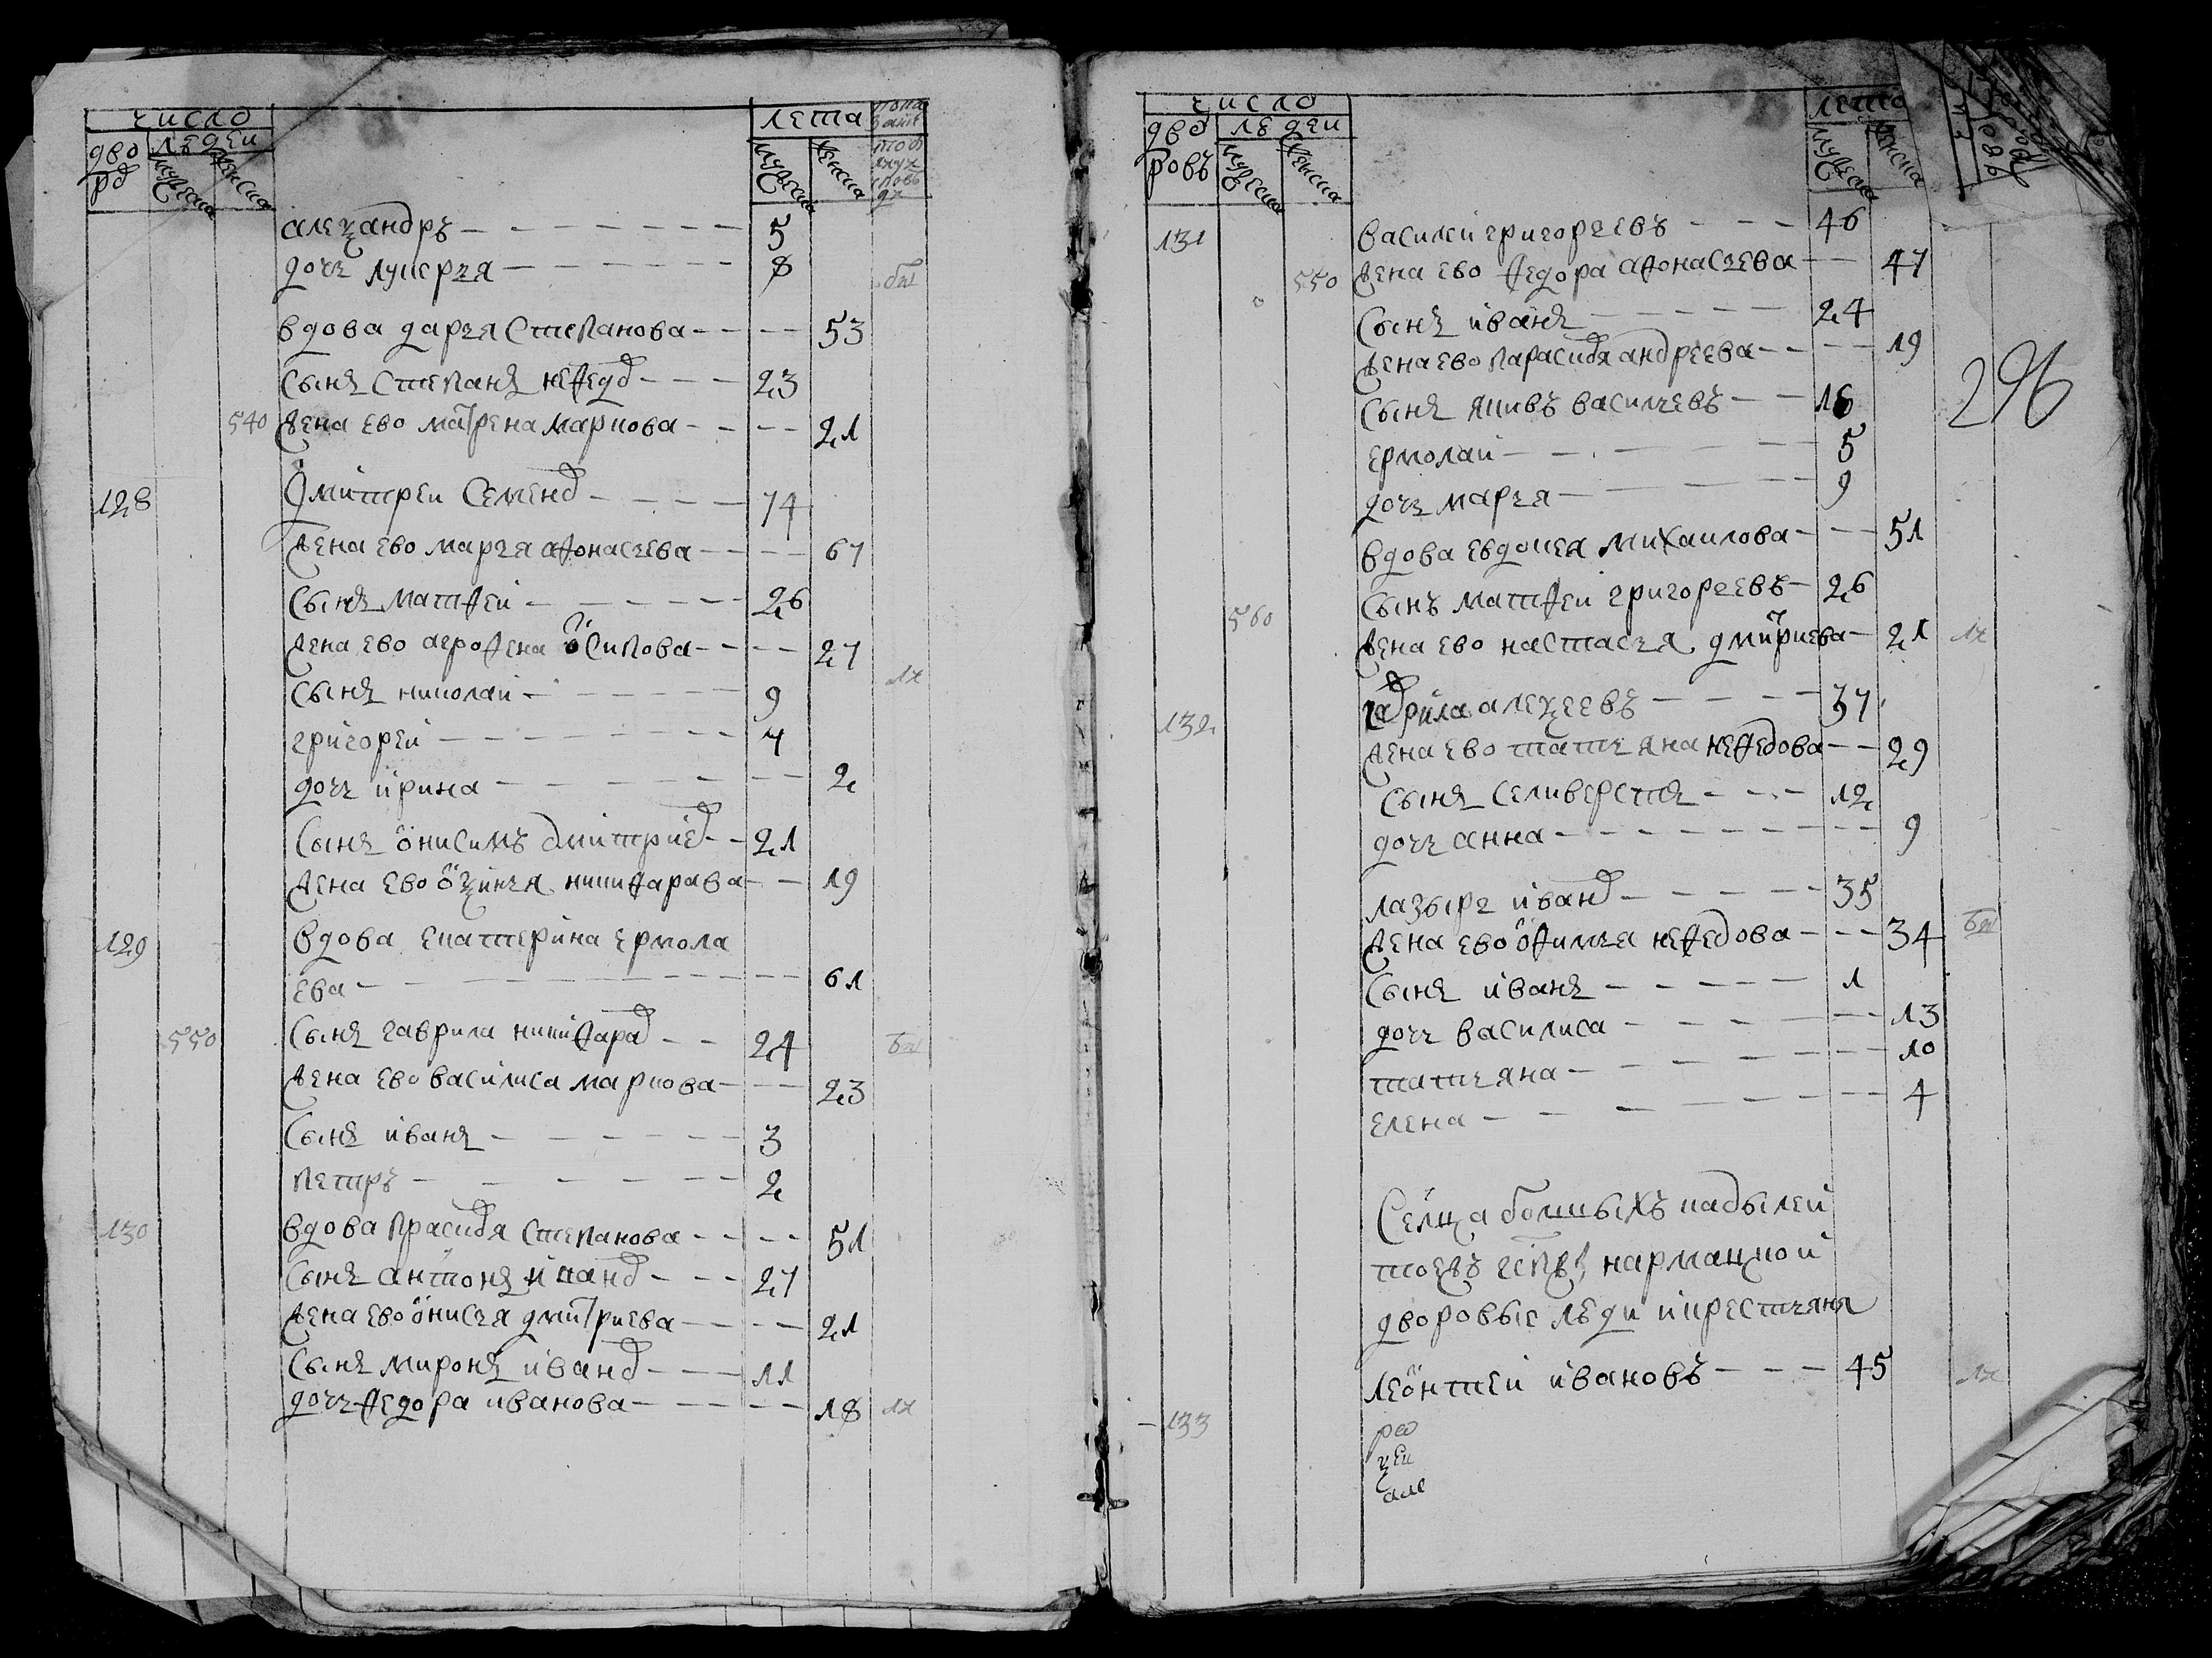 число
лета
дво ро
людеи
мужеска
женска
мужеска
женска
алеѯандръ 5
дочь лукерья 8
вдова дарья степанова 53
сынъ степанъ нефедо 23
540 жена ево матрена маркова 21
128 дмитреи семено 74
жена ево марья афонасьева 67
сынъ матфеи 26
жена ево агрофена осипова 27
сынъ николаи 9
григореи 7
дочь ирина 2
сынъ онисимъ дмитрие 21
жена ево оѯинья никифарава 19
129 вдова екатерина ермола
ева 61
550 сынъ гаврила никифаро 24
жена ево василиса маркова 23
сынъ иванъ 3
петръ 2
130 вдова прасковя степанова 51
сынъ антонъ ивано 27
жена ево онисья дмитриева 21
сынъ миронъ ивано 11
дочь федора иванова 18
число
лета
дво ровъ
людеи
мужеска
женска
мужеска
женска
296
131 василеи григорьевъ 46
550 жена ево федора афонасьева 47
сынъ иванъ 24
жена ево парасковя андреева 19
сынъ якивъ васильевъ 16
ермолаи 5
дочь марья 9
вдова евдокея михаилова 51
560 сынъ матфеи григорьевъ 26
жена ево настасья дмитриева 21
132 гаврила алеѯеевъ 37
жена ево татьяна нефедова 29
сынъ селиверстъ 12
дочь анна 9
лазырь ивано 35
жена ево офимья нефедова 34
сынъ иванъ 1
дочь василиса 13
татьяна 10
елена 4
селца болшыхъ кабылеи
тоежъ нармацкои
дворовые люди и крестьяня
133 леонтеи ивановъ 45